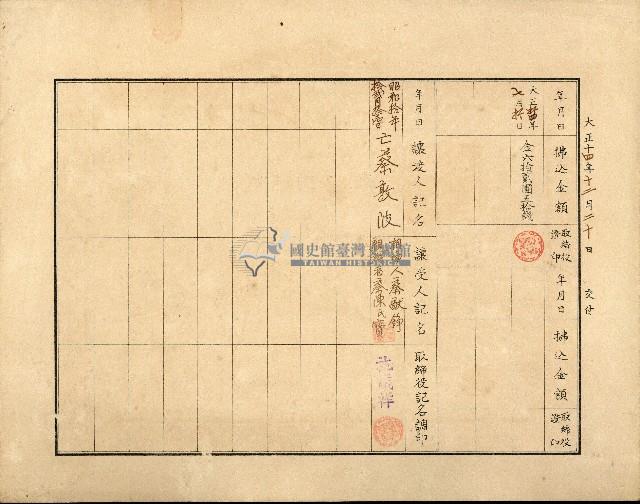 大正十四年十二月二十日 交付
年月日
拂込金額
取締役證印
年月日
拂込金額
取締役證印
大正十四年
七月
日
金六拾貳圓五拾錢
年月日
讓渡人記名
讓受人記名
取締役記名調印
昭和拾年
亡蔡敦波
相續人蔡猷錚
蔡陳氏寶
國史館臺灣文獻館
TAIWAN HISTORICA